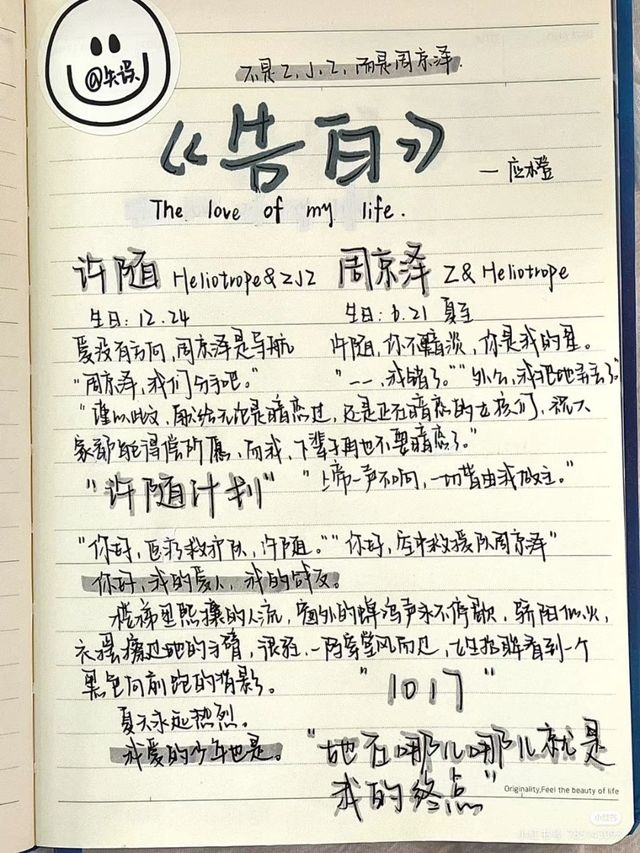 @失误.
不是Z.J.Z,而是周京泽.
《告白》
—应橙
The love of my life.
许随 Heliotrope&ZJZ 周京泽 Z & Heliotrope
生日:12.24 生日:6.21 夏至
爱没有方向,周京泽是导航 许随,你不暗淡,你是我的星。
"周京泽,我们分手吧。" "一一,我错了。""外公,我把她弄丢了。"
"谨以此文,献给无论是暗恋过,还是正在暗恋的女孩们,祝大
家都能得偿所愿,而我,下辈子再也不要暗恋了。"
"许随计划" "上帝一声不响,一切皆由我做主。"
"你好,医疗救护队,许随。""你好,空中救援队周京泽"
你好,我的爱人,我的战友。
楼梯里熙攘的人流,窗外的蝉鸣声永不停歇,骄阳似火,
衣摆擦过她的手臂,很轻.一阵穿堂风而过,女生抬眸看到一个
黑色向前跑的背影。 "1017"
夏天永远热烈。
我爱的少年也是。 "她在哪儿哪儿就是
我的终点"
Originality,Feel the beauty of life
小红书